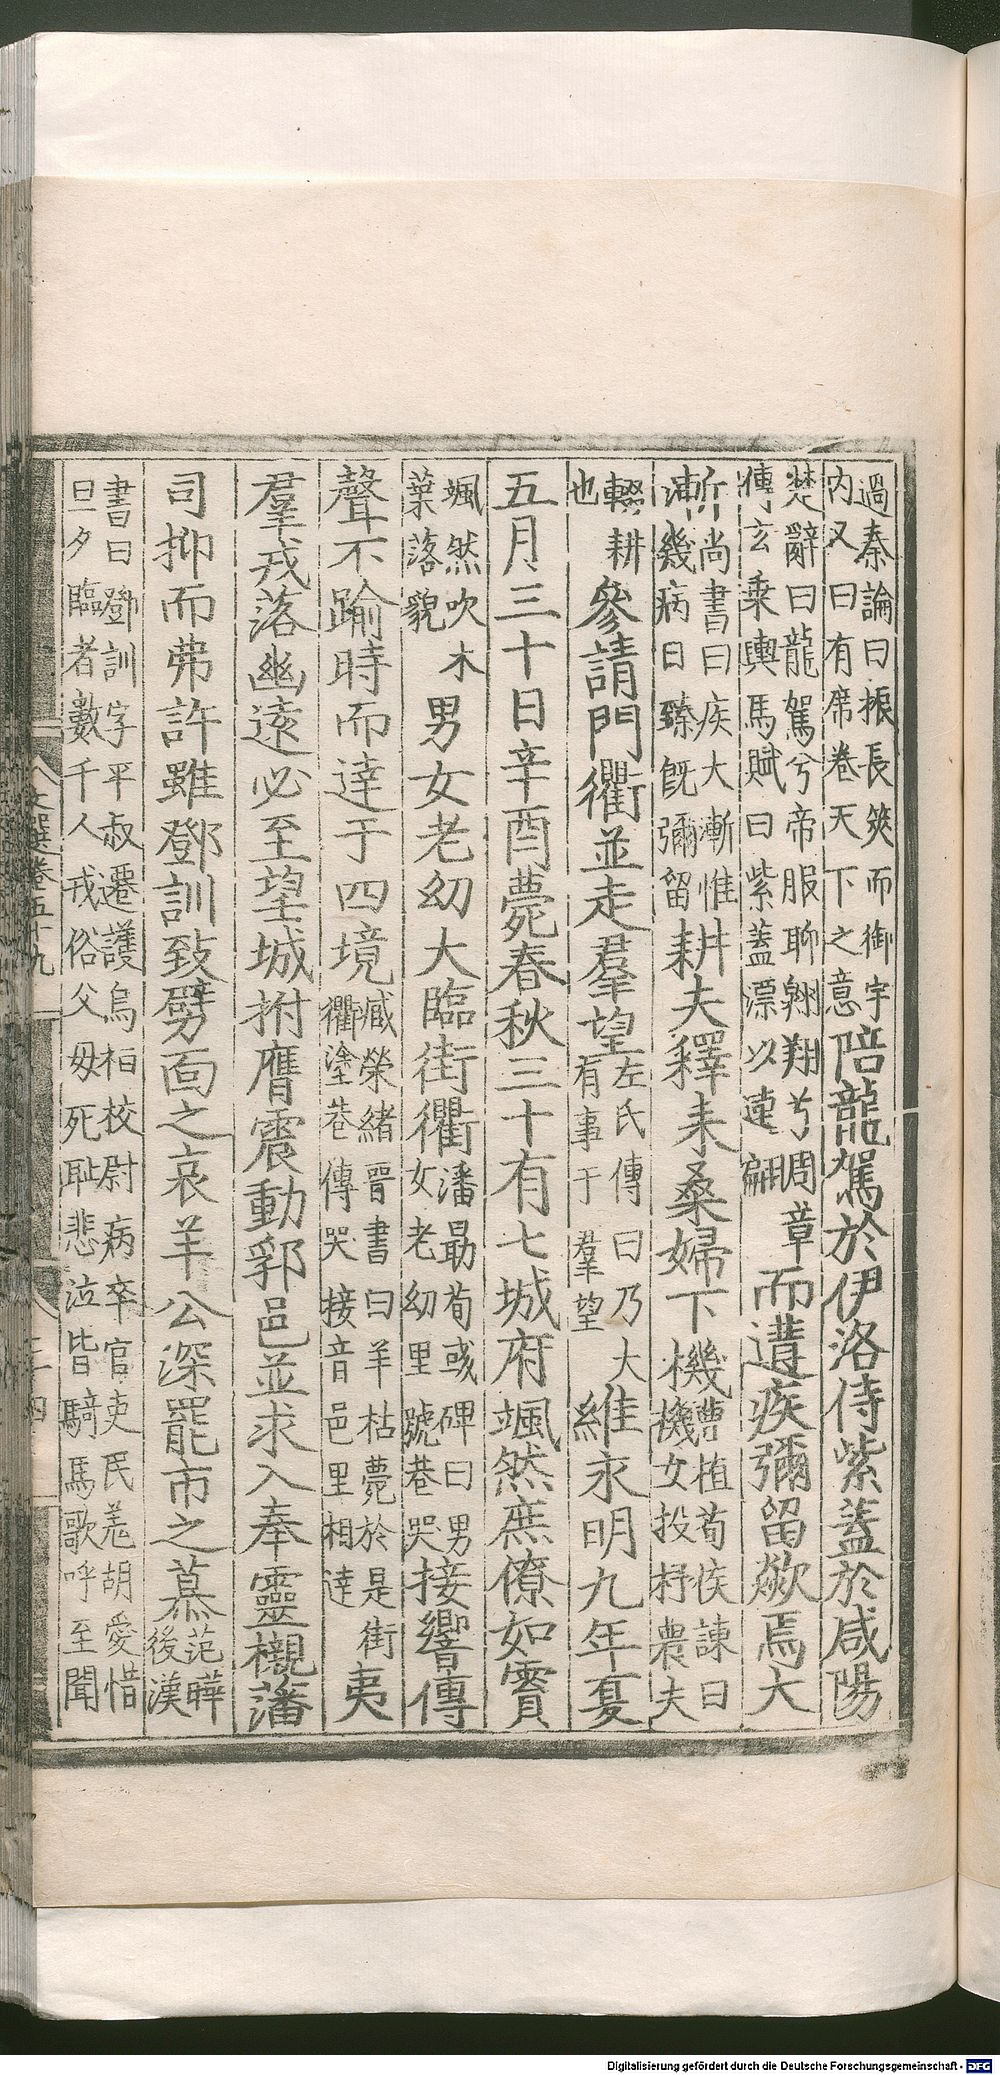 過秦論曰振長筴而御宇
内又曰有席卷天下之意陪龍駕於伊洛侍紫蓋於咸陽
楚辭曰龍駕兮帝服聊翱翔兮周章
傅玄乘輿馬賦曰紫蓋漂以連翩而遘疾彌留歘焉大
漸尚書曰疾大漸惟
幾病日臻既彌留耕夫釋耒桑婦下機曹植荀侯誄曰
機女投杼農夫
輟耕
也參請門衢並走羣望左氏傳曰乃大
有事于羣望維永明九年夏
五月三十日辛酉薨春秋三十有七城府颯然庶僚如霣
颯然吹木
葉落貌男女老幼大臨街衢潘勗荀彧碑曰男
女老幼里號巷哭接響傳
聲不踰時而達于四境臧榮緒晉書曰羊祜薨於是街
衢塗巷傳哭接音邑里相達夷
羣戎落幽遠必至望城拊膺震動郛邑並求入奉靈櫬藩
司抑而弗許雖鄧訓致劈面之哀羊公深罷市之慕范曄
後漢
書曰鄧訓字平叔遷護烏桓校尉病卒官吏民羌胡愛惜
旦夕臨者數千人戎俗父母死恥悲泣皆騎馬歌呼至聞
文選卷五十九
Digitalisierung gefördert durch die Deutsche Forschungsgemeinschaft - DFG